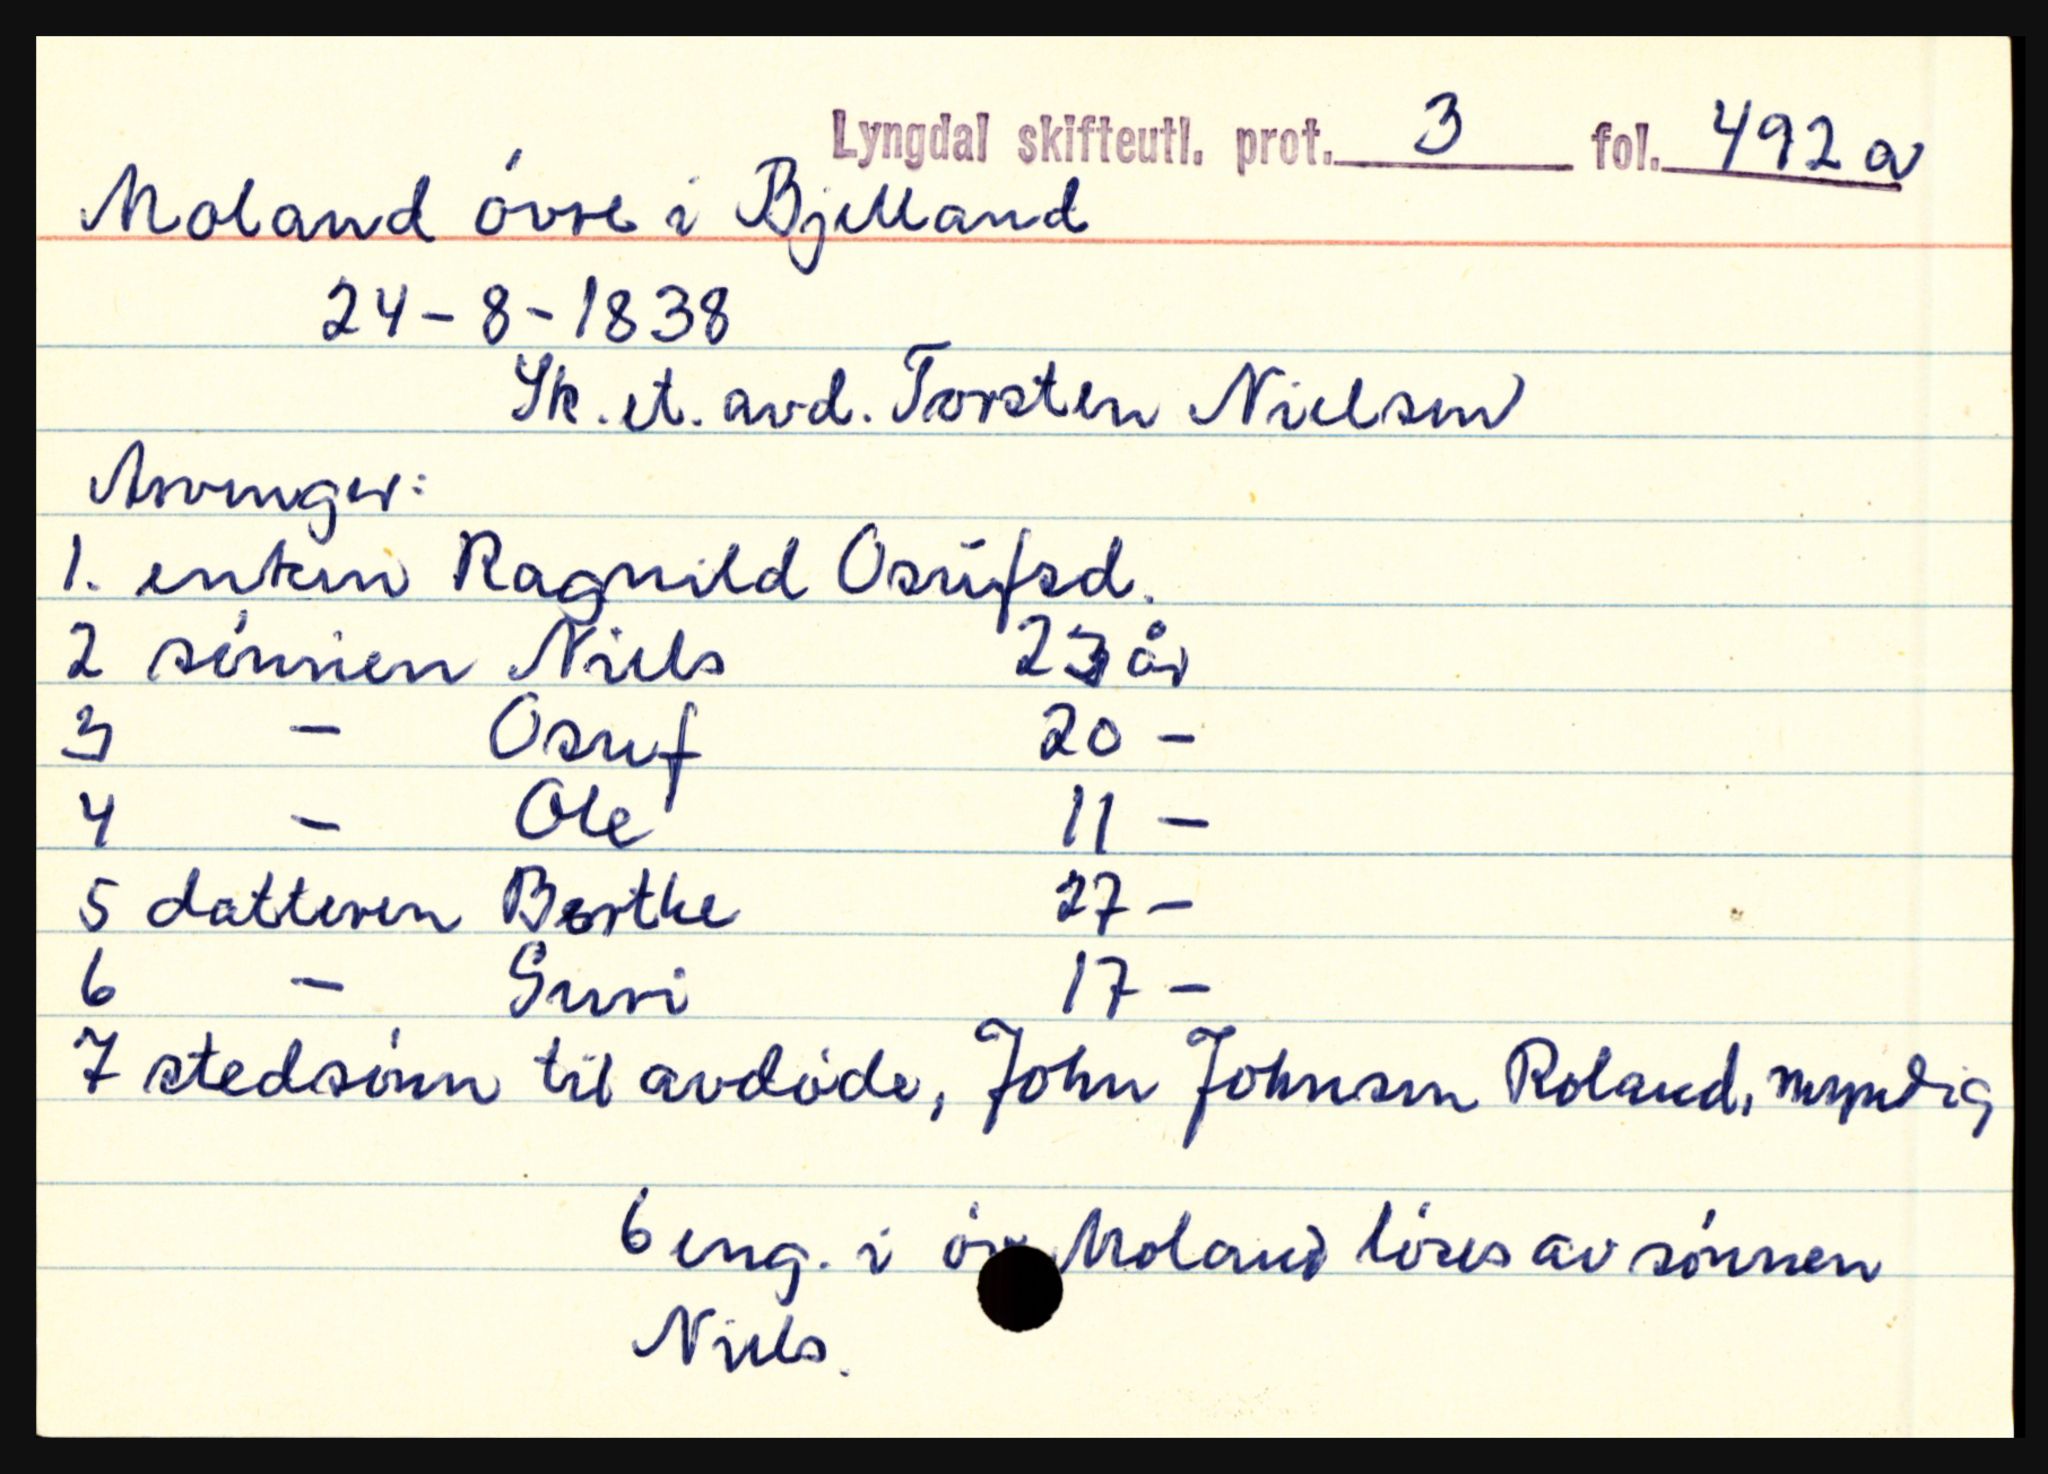 Lyngdal skifteutl. prot. 3 fol. 492 a
Moland óvre i Bjelland
24-8-1838
Sk. et. avd. Torsten Nielsen
Arvinger:
1. enken Ragnild Osufsd.
2 sónnen Niels 23 år
3 - Osuf 20 -
4 - Ole 11 -
5 datteren Berthe 27 -
6 - Guri 17 -
7 stedsónn til avdóde, John Johnsen Roland, myndig
6 eng. i óv Moland lóses av sónnen
Niels.